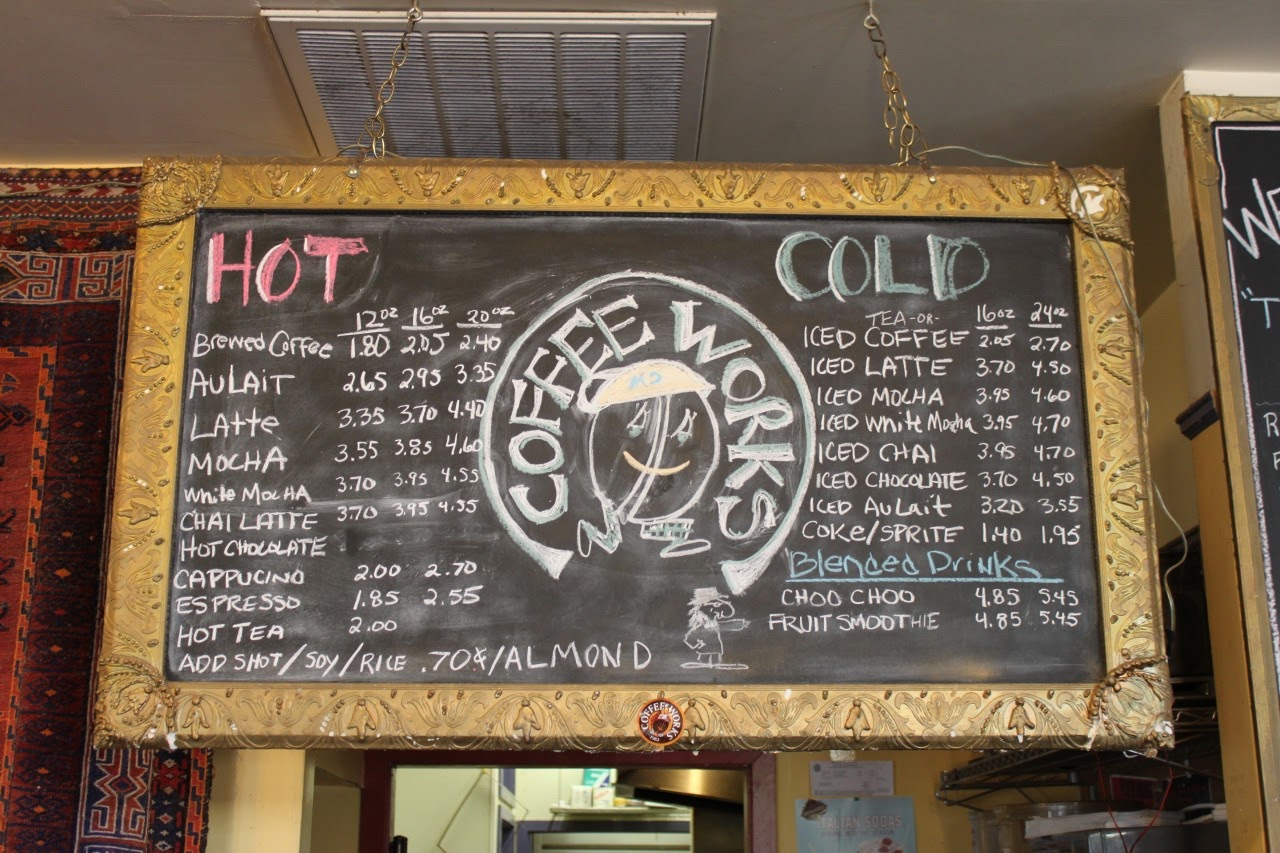 HOT
12oz 16oz 20oz
Brewed Coffee 1.80 2.05 2.40
AU LAIT 2.65 2.95 3.35
LATTe 3.35 3.70 4.40
MOCHA 3.55 3.85 4.60
White MOCHA 3.70 3.95 4.55
CHAI LATTE 3.70 3.95 4.55
HOT CHOCOLATE
CAPPUCINO 2.00 2.70
ESPRESSO 1.85 2.55
HOT TEA 2.00
ADD SHOT/SOY/RICE .70¢/ALMOND
COFFEE WORKS
MS
COLD
16oz 24oz
TEA-OR-
ICED COFFEE 2.05 2.70
ICED LATTE 3.70 4.50
ICED MOCHA 3.95 4.60
ICED White Mocha 3.95 4.70
ICED CHAI 3.95 4.70
ICED CHOCOLATE 3.70 4.50
ICED AuLait 3.20 3.55
COKE/SPRITE 1.40 1.95
Blended Drinks
CHOO CHOO 4.85 5.45
FRUIT SMOOTHIE 4.85 5.45
COFFEE WORKS
ITALIAN SODAS